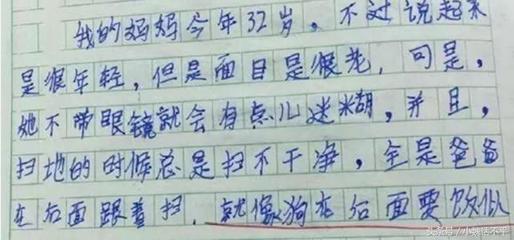 我的妈妈今年32岁，不过说起来
是很年轻，但是面目是很老，可是，
她不带眼镜就会有点儿迷糊，并且，
扫地的时候总是扫不干净，全是爸爸
在后面跟着扫．就像狗在后面要饭似